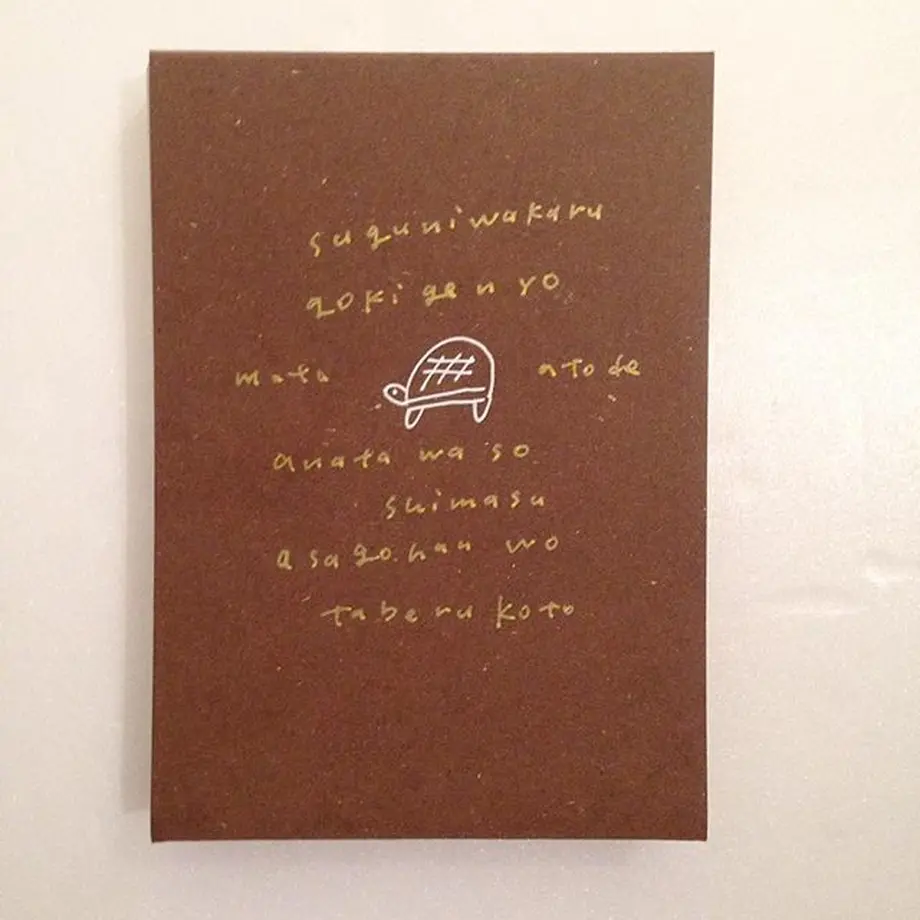 suguniwakaru
gokigenyo
mata atode
anata wa so
shimasu
asagohan wo
taberu koto